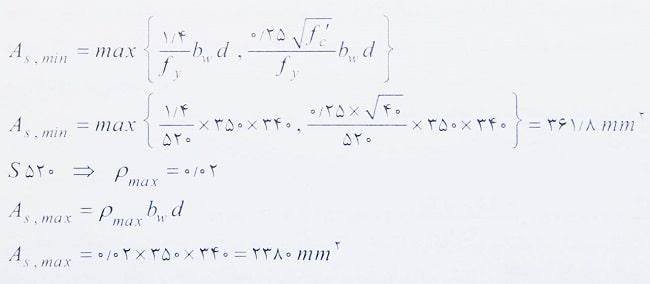 A s , min = max { ۱/۴ / f y b w d , ۰/۲۵ √f′c / f y b w d }
A s , min = max { ۱/۴ / ۵۲۰ ×۳۵۰×۳۴۰ , ۰/۲۵×√۴۰ / ۵۲۰ ×۳۵۰×۳۴۰ } = ۳۶۱/۸ mm²
S ۵۲۰ ⇒ ρ max = ۰/۰۲
A s , max = ρ max b w d
A s , max = ۰/۰۲×۳۵۰×۳۴۰ = ۲۳۸۰ mm²